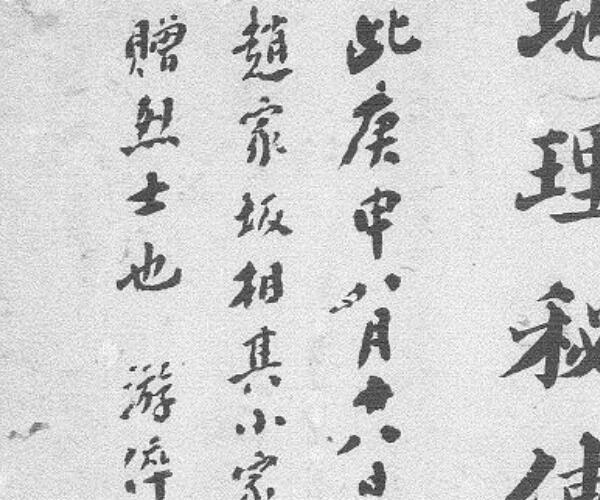 地理秘
此庚申八月十八日
趙家坂相其小家
贈烈士也 游